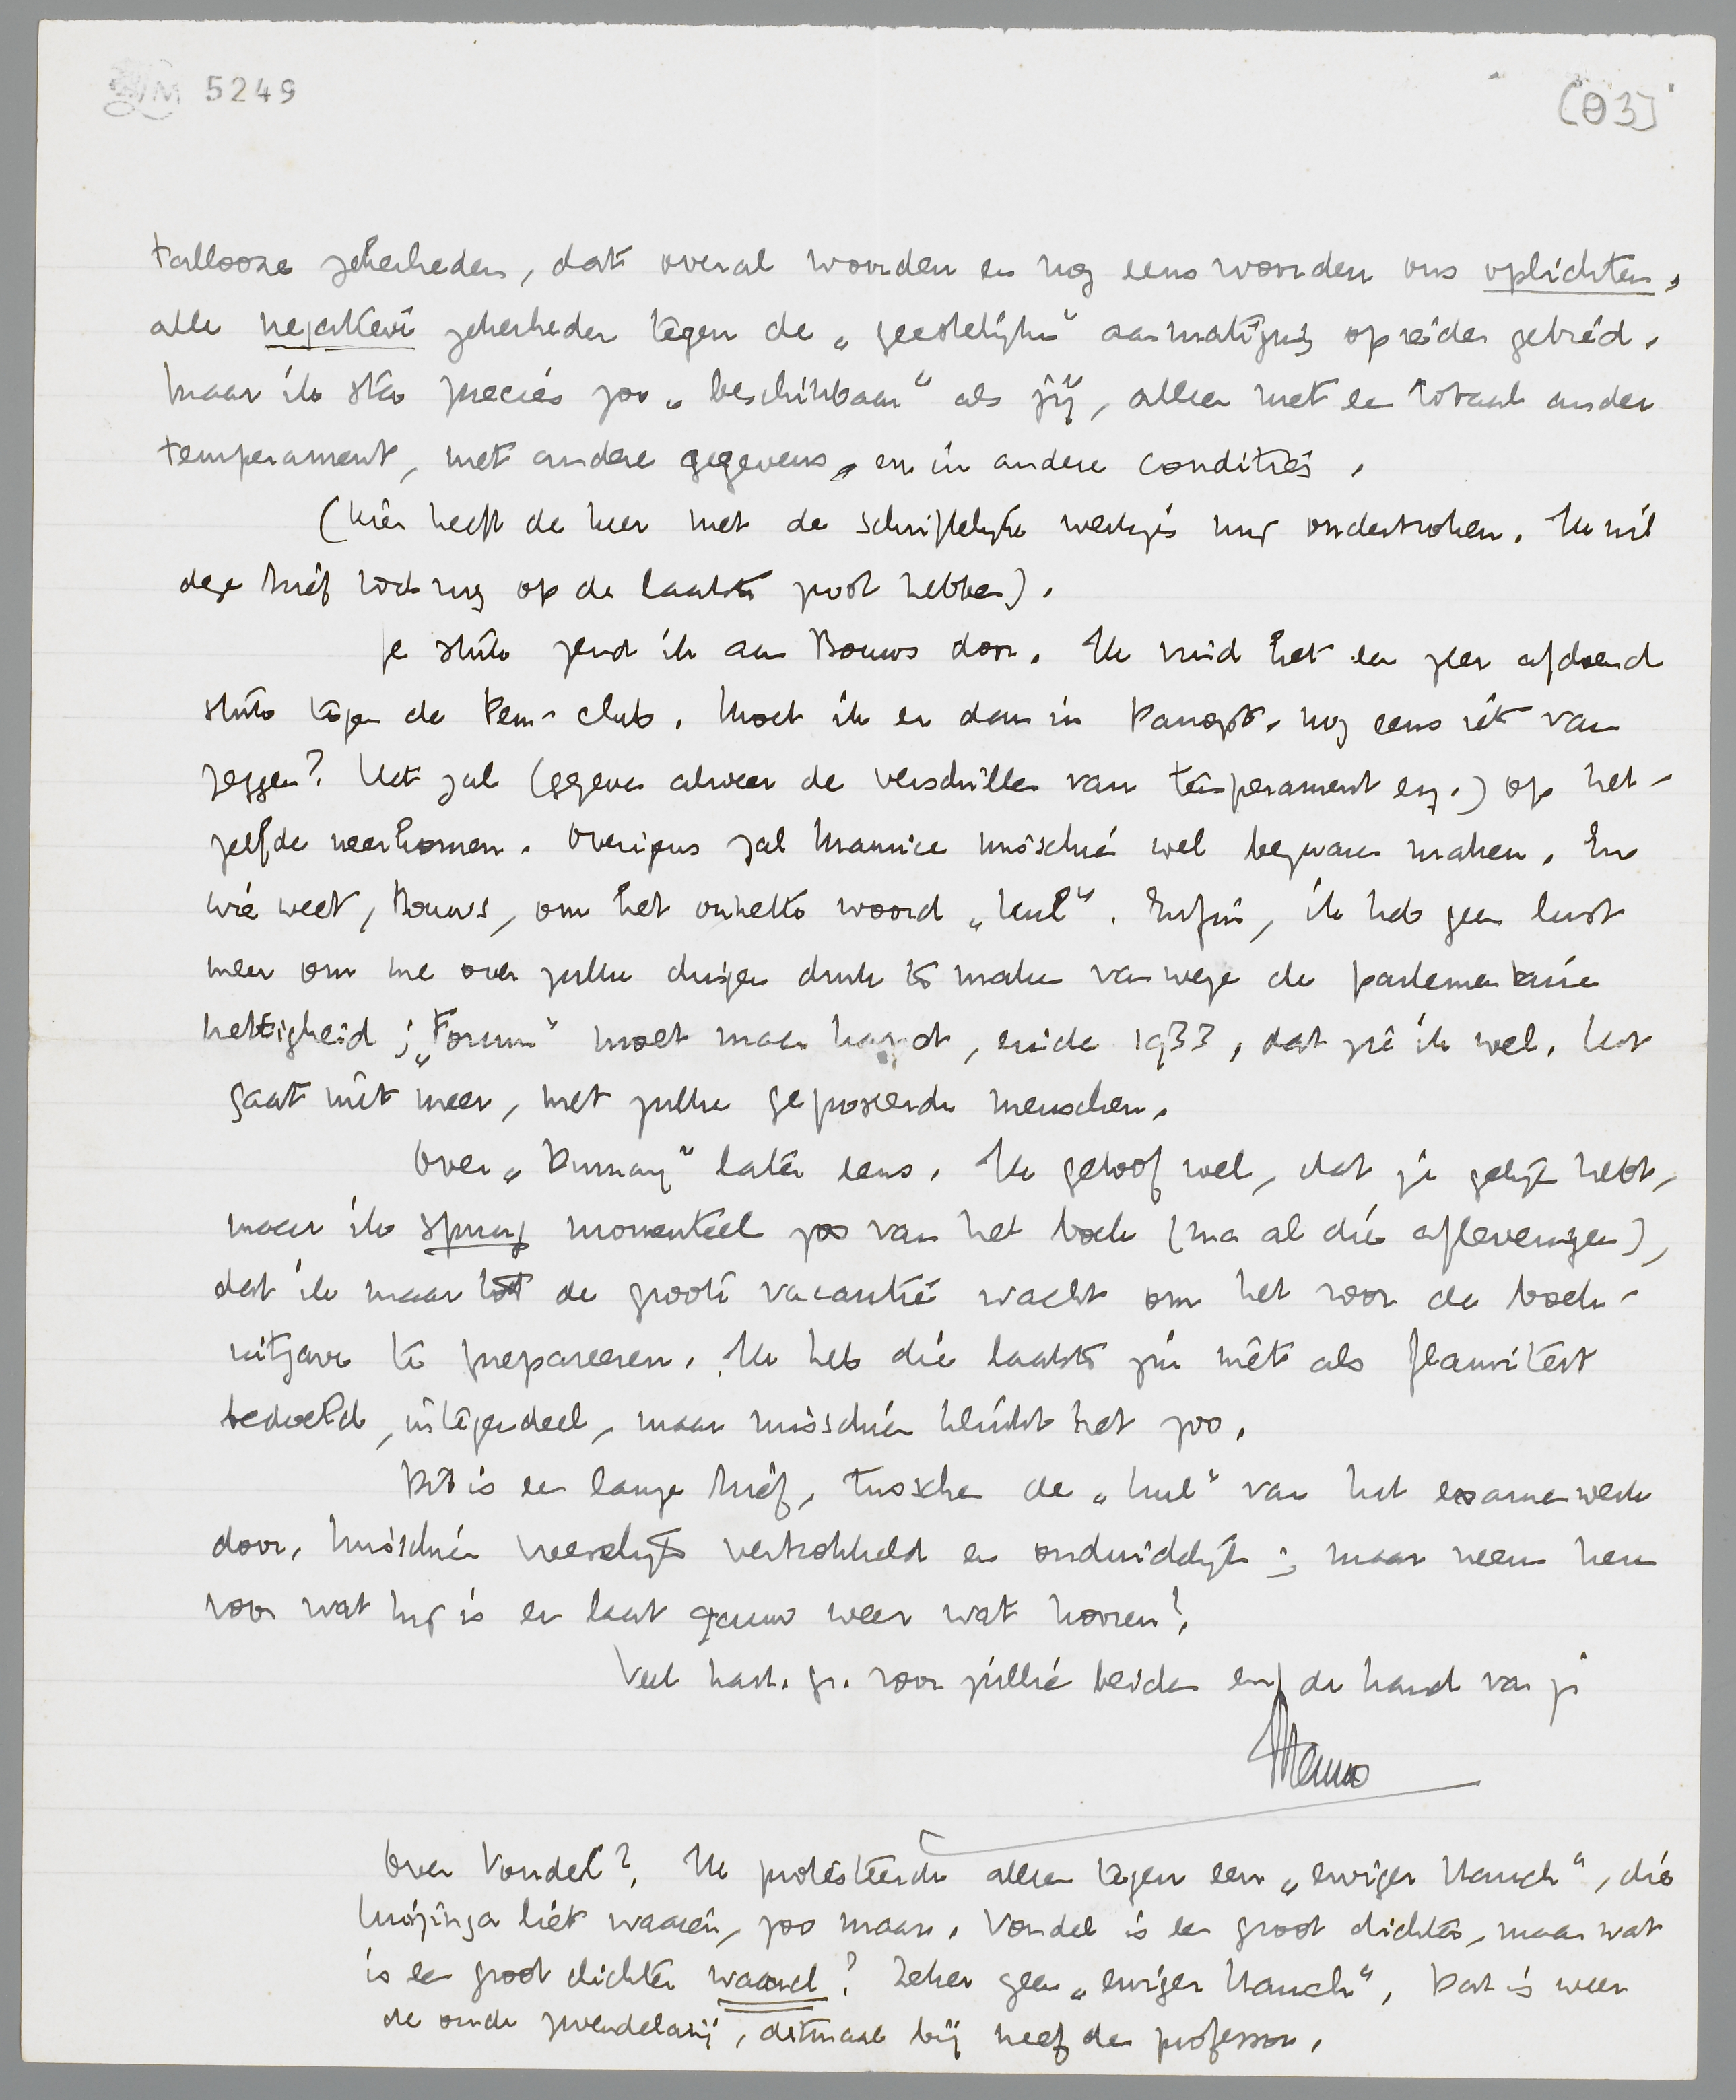 LM 5249
[03]
tallooze zekerheden, dat overal woorden en nog eens woorden ons oplichten,
alle negatieve zekerheden tegen de „geestelijke" aanmatiging op eider gebied.
Maar ik sta precies zoo „beschikbaar" als jij, alleen met een totaal ander
temperament, met andere gegevens, en in andere condities.
(Hier heeft de heer met de schriftelijke werkjes mij onderbroken. Ik wil
deze brief toch nog op de laatste post hebben).
Je stuk zend ik aan Bouws door. Ik vind het een zeer afdoend
stuk tegen de Pen-club. Moet ik er dan in Panopt. nog eens iets van
zeggen? Het zal (gegeven alweer de verschillen van temperament enz.) op het-
zelfde neerkomen. Overigens zal Maurice misschien wel bezwaren maken. En
wie weet, Bouws, om het onnette woord „kul". Enfin, ik heb geen lust
meer om me over zulke dingen druk te maken vanwege de parlementaire
nettigheid; „Forum" moet maar kapot, einde 1933, dat zie ik wel. Het
gaat niet meer, met zulke geposeerde menschen.
Over „Dumay" later eens. Ik geloof wel, dat je gelijk hebt,
maar ik spuug momenteel zoo van het boek (na al die afleveringen),
dat ik maar tot de groote vacantie wacht om het voor de boek-
uitgave te prepareeren. Ik heb die laatste zin niet als flauwiteit
bedoeld, integendeel, maar misschien klinkt het zoo.
Dit is een lange brief, tusschen de „kul" van het examenwerk
door. Misschien vreeselijk vertrokkeld en onduidelijk; maar neem hem
voor wat hij is en laat gauw weer wat hooren!
Veel hart. gr. voor jullie beiden en de hand van je
Menno
Over Vondel? Ik protesteerde alleen tegen een „ewiger Hauch", die
Huizinga liet waaien, zoo maar. Vondel is een groot dichter, maar wat
is een groot dichter waard? Zeker geen „ewiger Hauch". Dat is weer
de oude zwendelarij, ditmaal bij neef de professor.